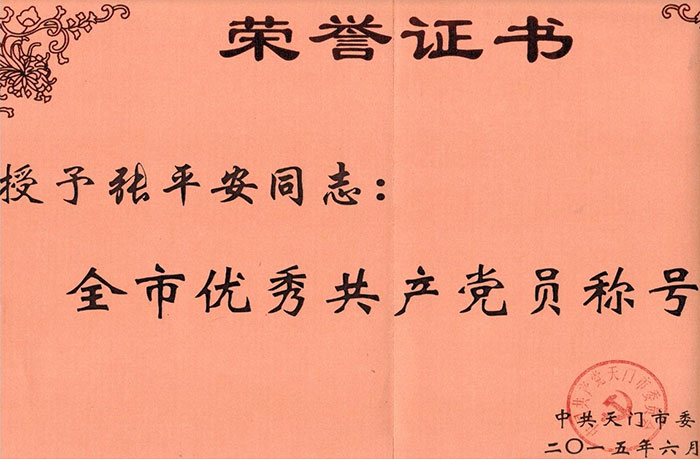 荣誉证书
授予张平安同志：
全市优秀共产党员称号
中共天门市委
二〇一五年六月